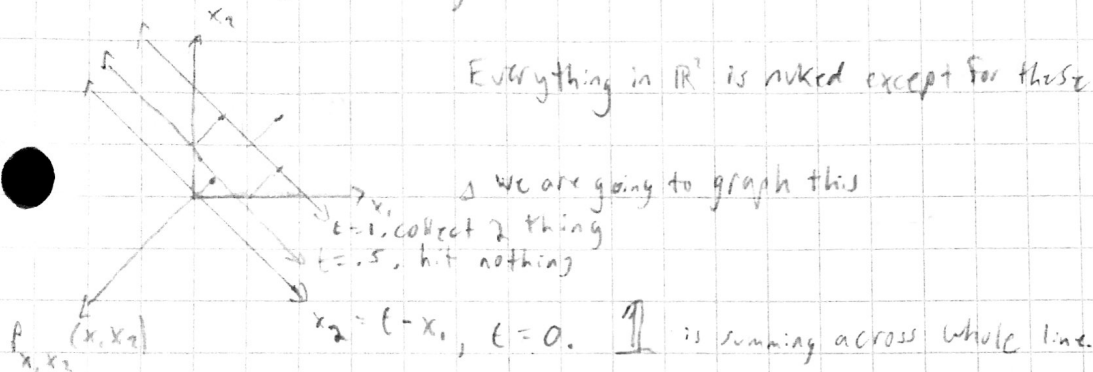 x₂
Everything in ℝ² is nuked except for these
we are going to graph this
x₁
t=1, collect 2 thing
t=.5, hit nothing
x₂ = t - x₁, t = 0. 𝟙 is summing across whole line.
P_{x₁,x₂}(x₁,x₂)